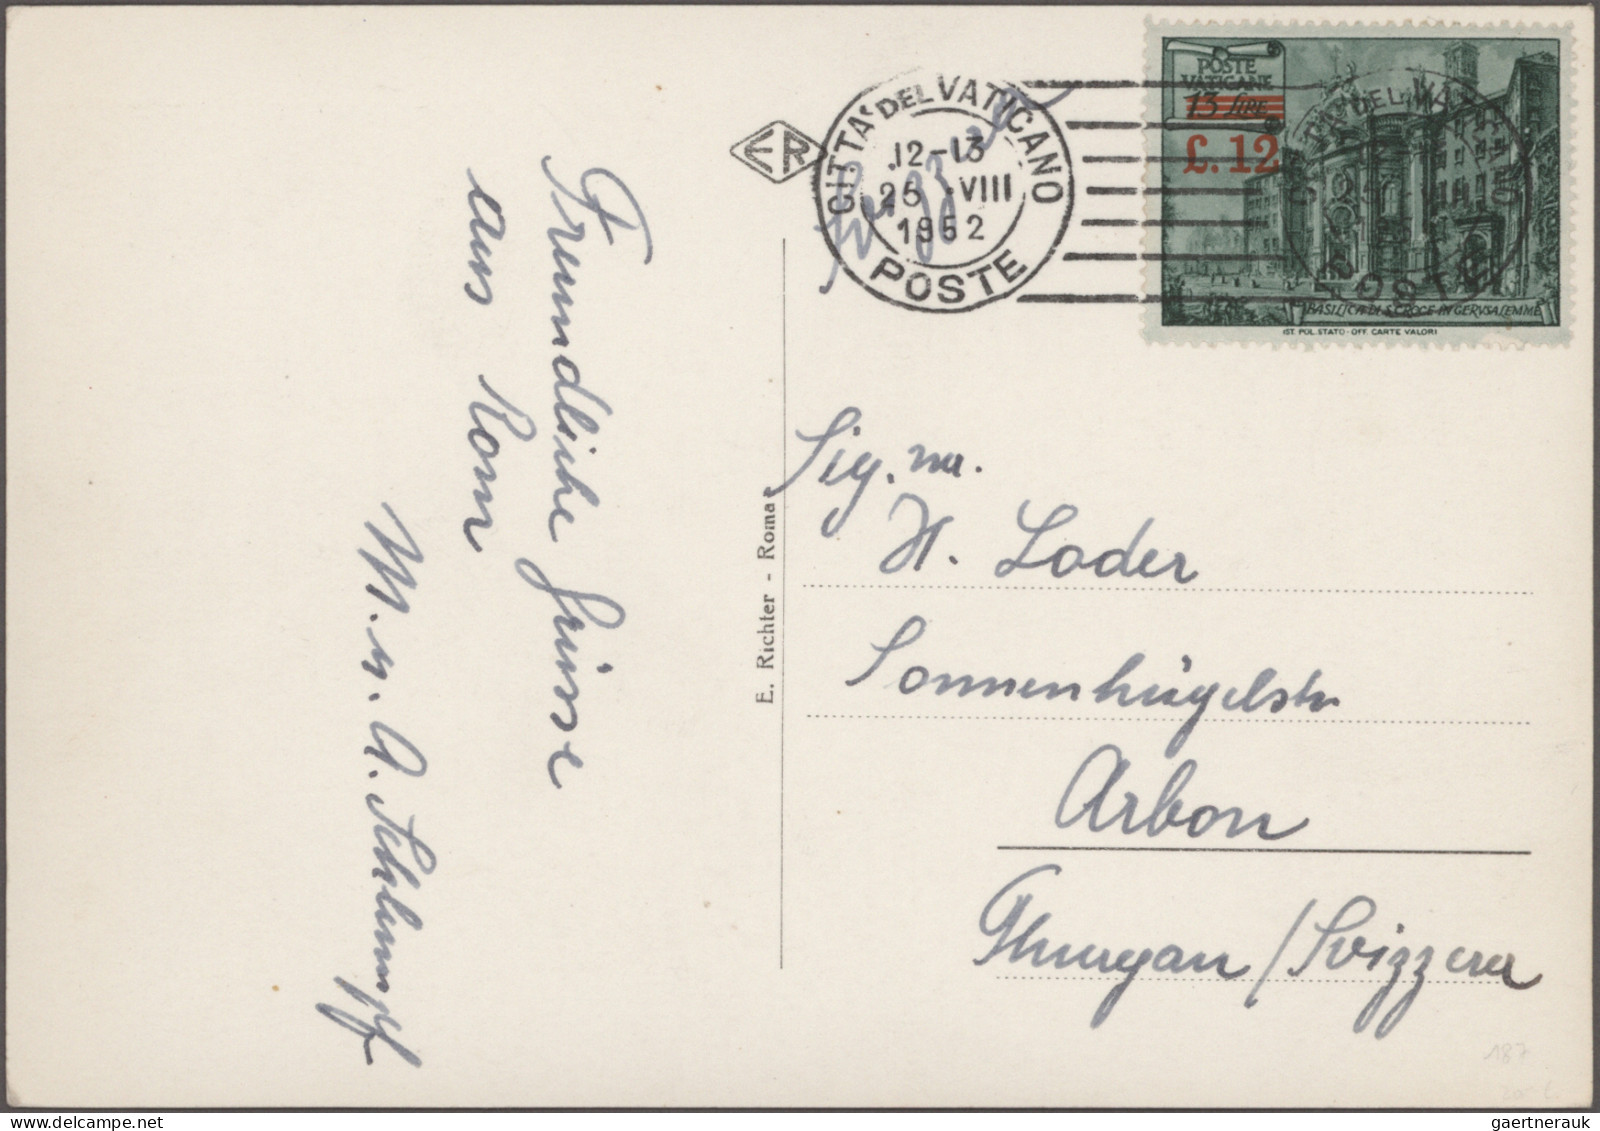 Freundliche Grüsse
aus Rom
M. u. A. Schlumpf
E. Richter - Roma
ER
CITTA' DEL VATICANO
12-13
25 VIII
1952
POSTE
POSTE
VATICANE
13 LIRE
£. 12
BASILICA DI S. CROCE IN GERVSALEMME
IST. POL. STATO - OFF. CARTE VALORI
Sig.na.
H. Loder
Sonnenhügelstr.
Arbon
Thurgau / Svizzera
187
gaertnerauk